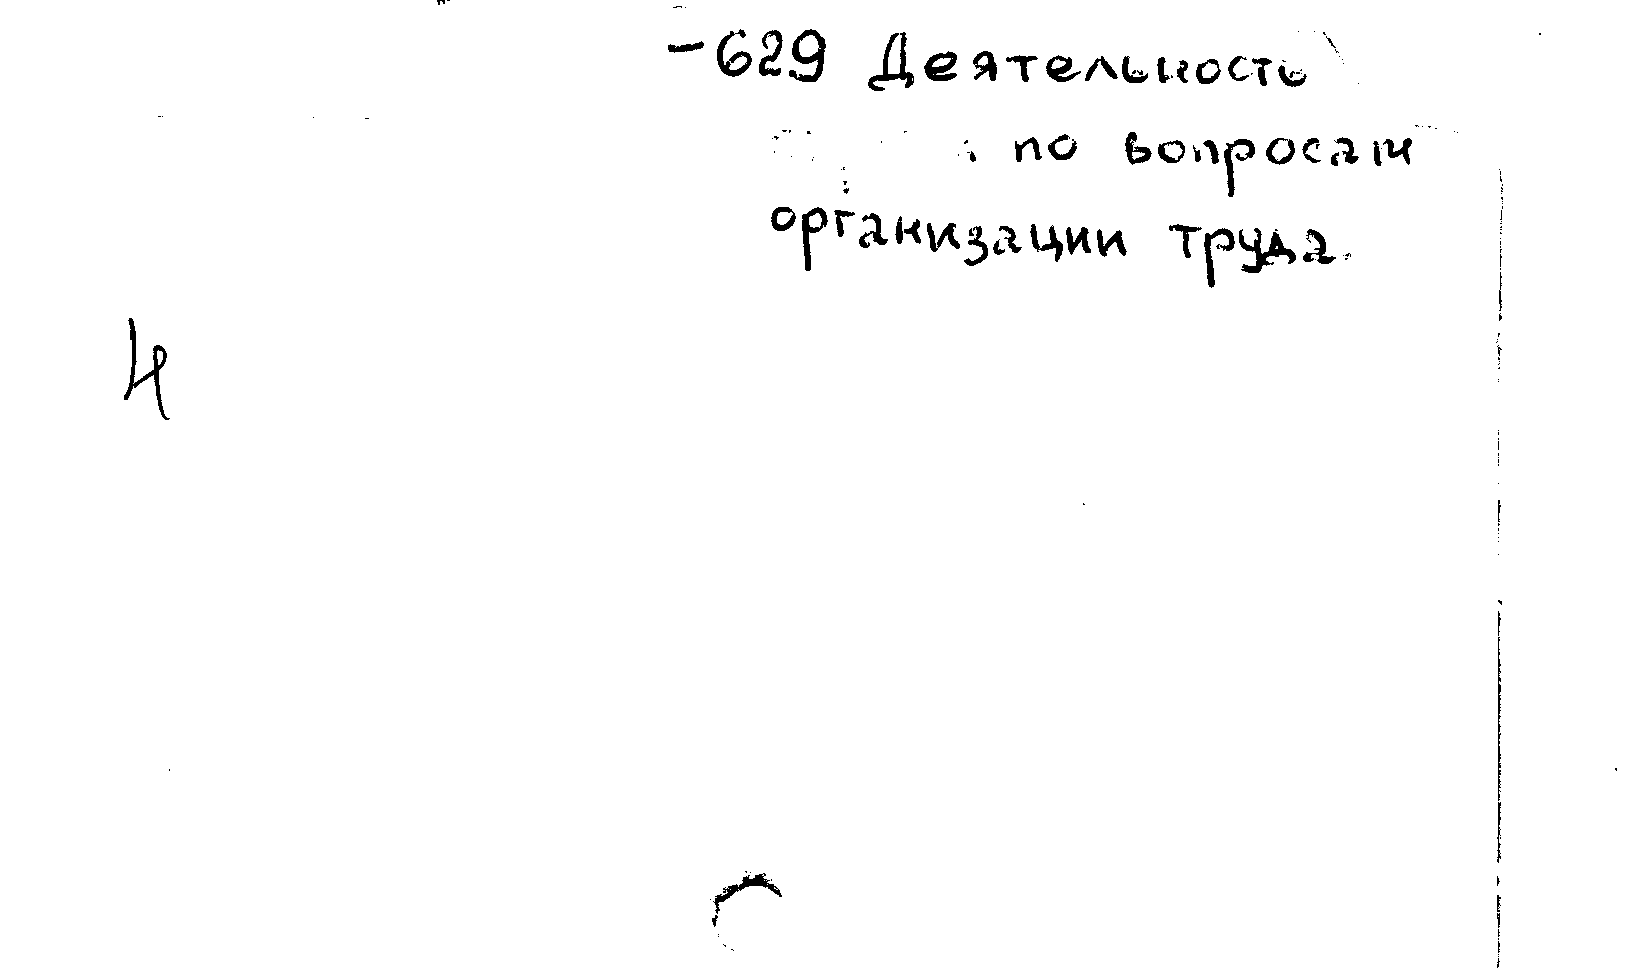 -629 Деятельность
по вопросам
организации труда.
4